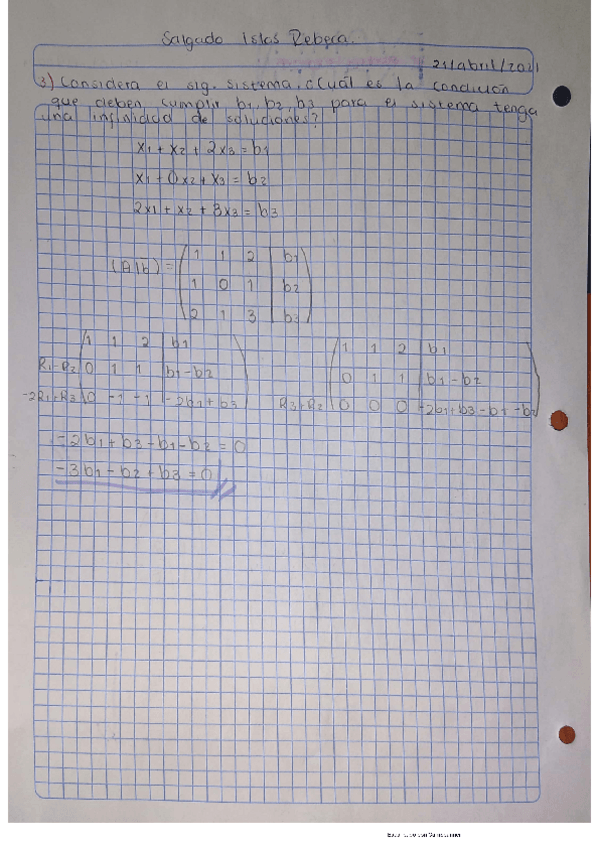 Salgado Islas Rebeca.
21/abril/2021
3) Considera el sig. sistema. ¿Cuál es la condición
que deben cumplir b1, b2, b3 para el sistema tenga
una infinidad de soluciones?
x1 + x2 + 2x3 = b1
x1 + 0x2 + x3 = b2
2x1 + x2 + 3x3 = b3
(A|b) = 1 1 2 | b1
1 0 1 | b2
2 1 3 | b3
1 1 2 | b1
R1-R2 0 1 1 | b1-b2
-2R1+R3 0 -1 -1 | -2b1+b3
1 1 2 | b1
0 1 1 | b1-b2
R3+R2 0 0 0 | -2b1+b3-b1-b2
-2b1+b3-b1-b2 = 0
-3b1-b2+b3 = 0